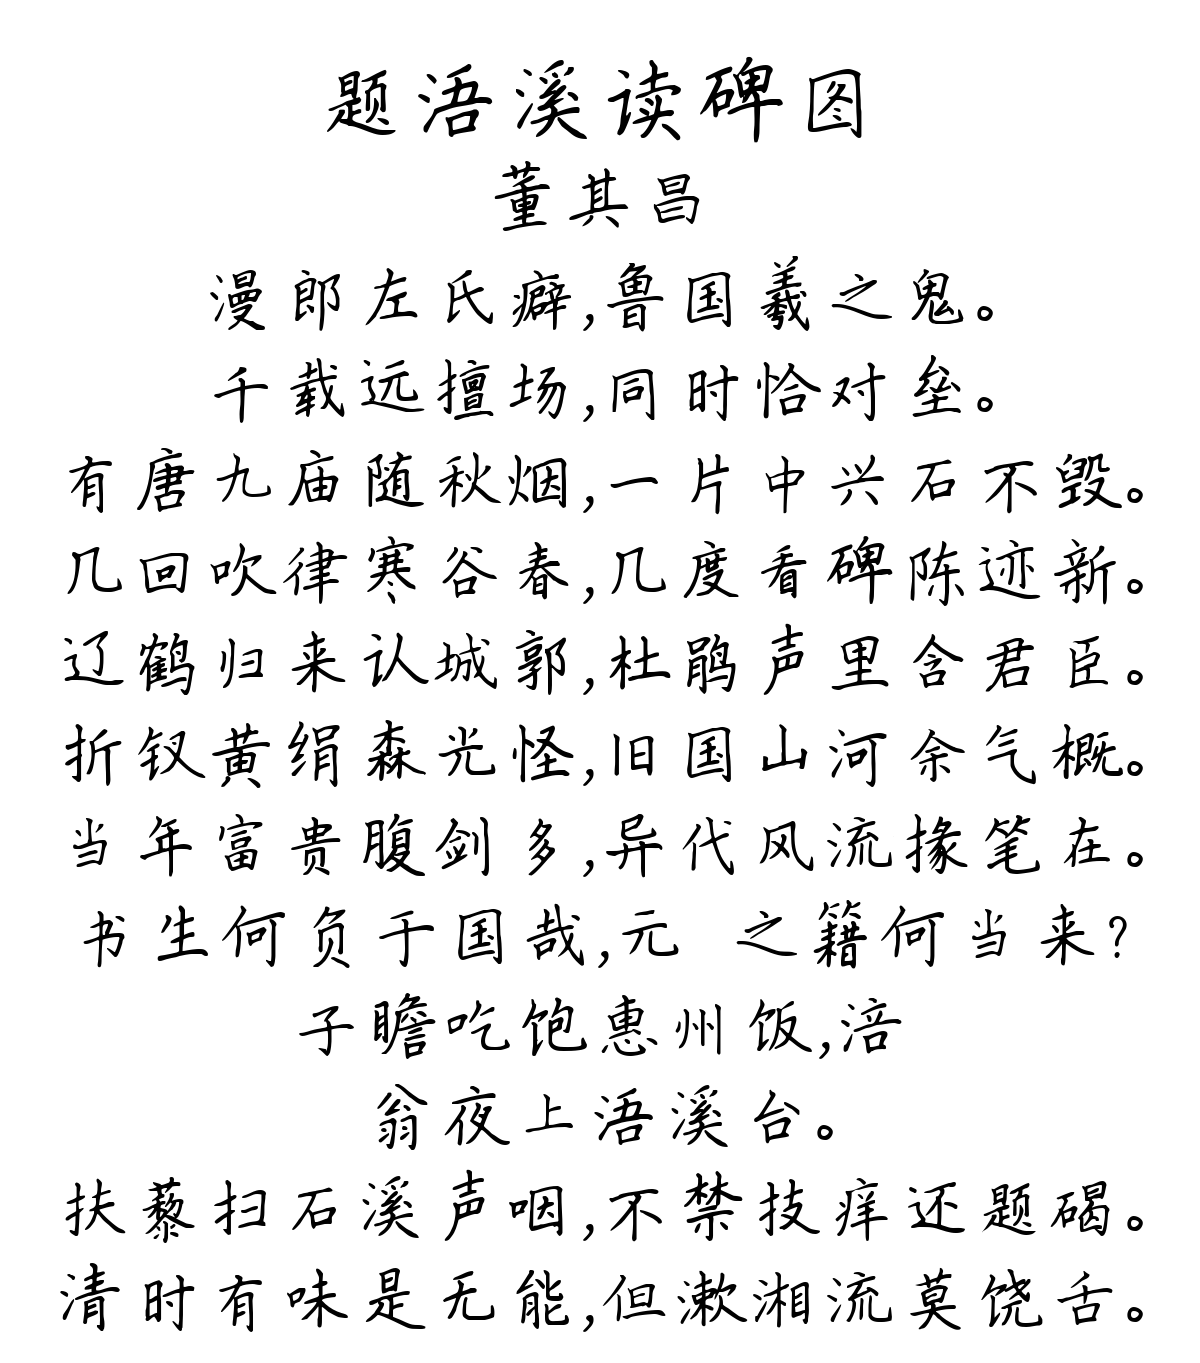 题浯溪读碑图
董其昌
漫郎左氏癖,鲁国羲之鬼。
千载远擅场,同时恰对垒。
有唐九庙随秋烟,一片中兴石不毁。
几回吹律寒谷春,几度看碑陈迹新。
辽鹤归来认城郭,杜鹃声里含君臣。
折钗黄绢森光怪,旧国山河余气概。
当年富贵腹剑多,异代风流掾笔在。
书生何负于国哉,元 之籍何当来?
子瞻吃饱惠州饭,涪
翁夜上浯溪台。
扶藜扫石溪声咽,不禁技痒还题碣。
清时有味是无能,但漱湘流莫饶舌。